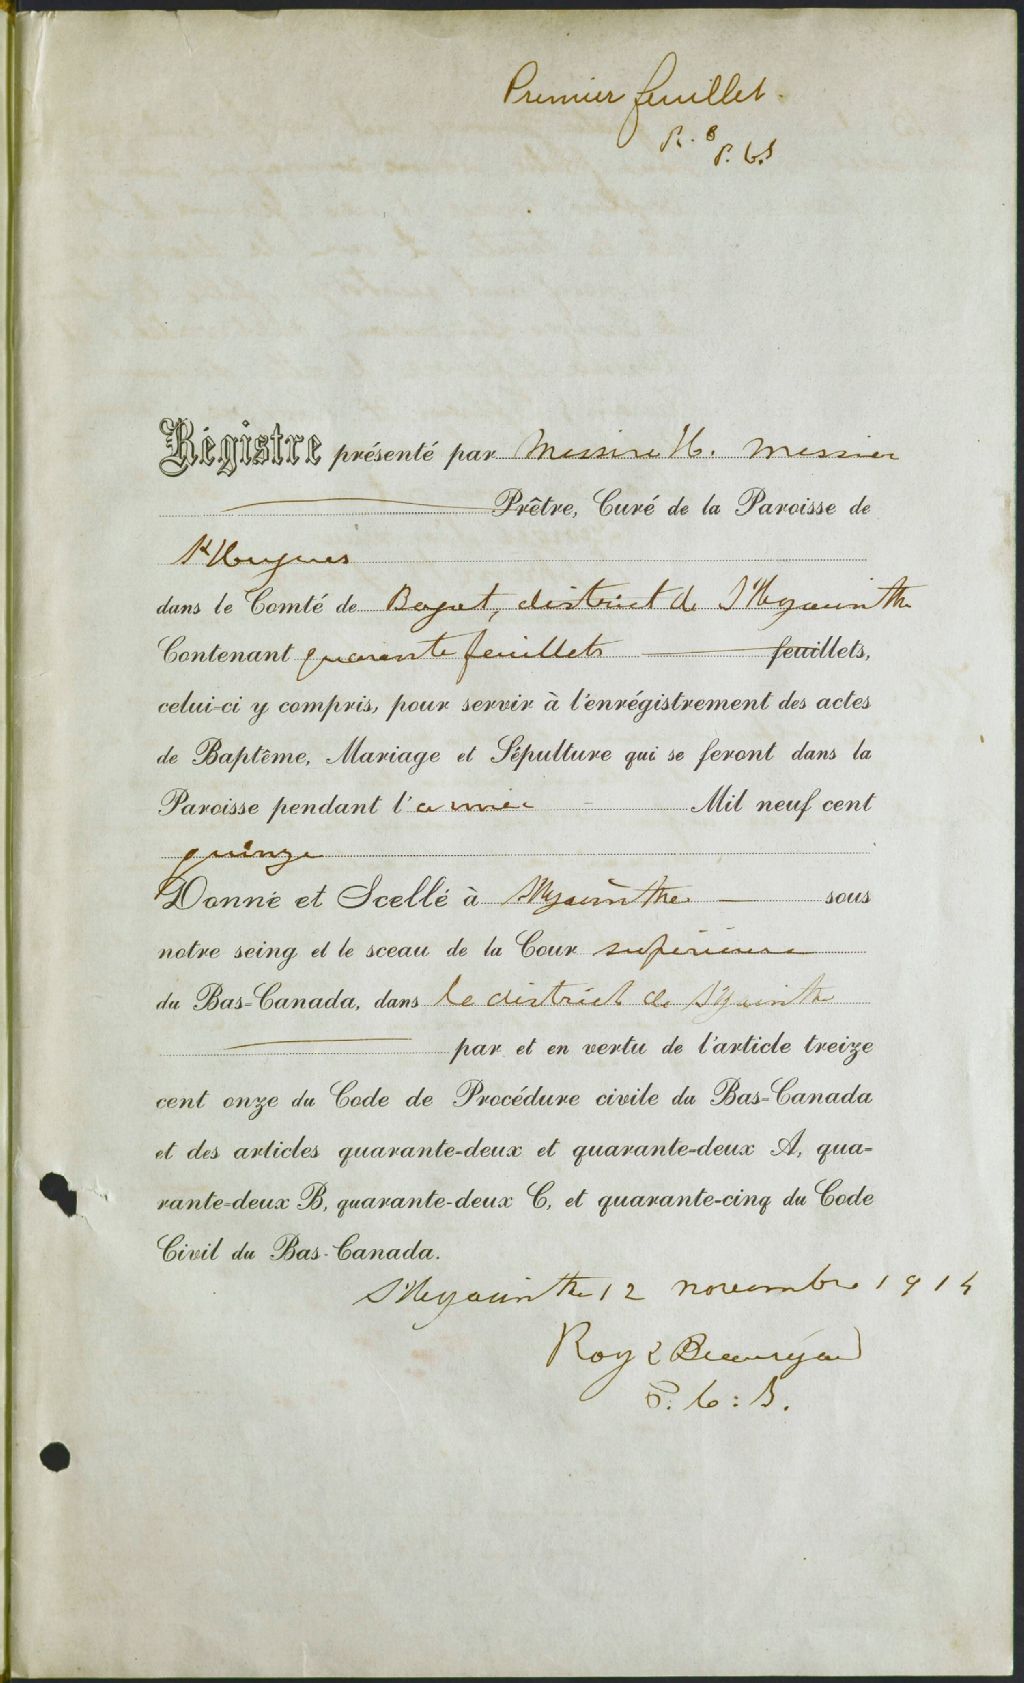 Premier feuillet.
R. B
P. C. S
Régistre présenté par Messire H. Messier
Prêtre, Curé de la Paroisse de
St Hugues
dans le Comté de Bagot, district de St Hyacinthe
Contenant quarante feuillets feuillets,
celui-ci y compris, pour servir à l'enrégistrement des actes
de Baptême, Mariage et Sépulture qui se feront dans la
Paroisse pendant l'année Mil neuf cent
quinze
Donné et Scellé à St Hyacinthe sous
notre seing et le sceau de la Cour supérieure
du Bas-Canada, dans le district de St Hyacinthe
par et en vertu de l'article treize
cent onze du Code de Procédure civile du Bas-Canada
et des articles quarante-deux et quarante-deux A, qua-
rante-deux B, quarante-deux C, et quarante-cinq du Code
Civil du Bas-Canada.
St Hyacinthe 12 novembre 1914
Roy & Beauregard
P. C. S.